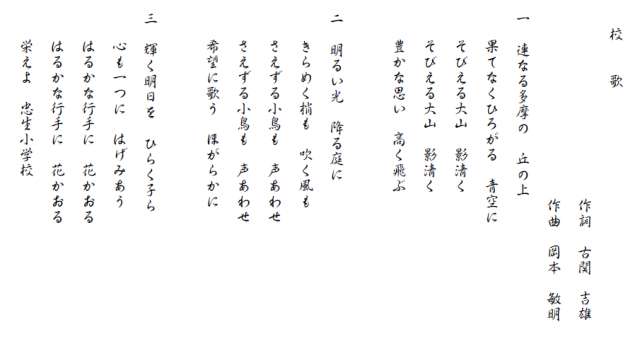 校 歌
作詞 古関 吉雄
作曲 岡本 敏明
一 連なる多摩の 丘の上
果てなくひろがる 青空に
そびえる大山 影清く
そびえる大山 影清く
豊かな思い 高く飛ぶ
二 明るい光 降る庭に
きらめく梢も 吹く風も
さえずる小鳥も 声あわせ
さえずる小鳥も 声あわせ
希望に歌う ほがらかに
三 輝く明日を ひらく子ら
心も一つに はげみあう
はるかな行手に 花かおる
はるかな行手に 花かおる
栄えよ 忠生小学校